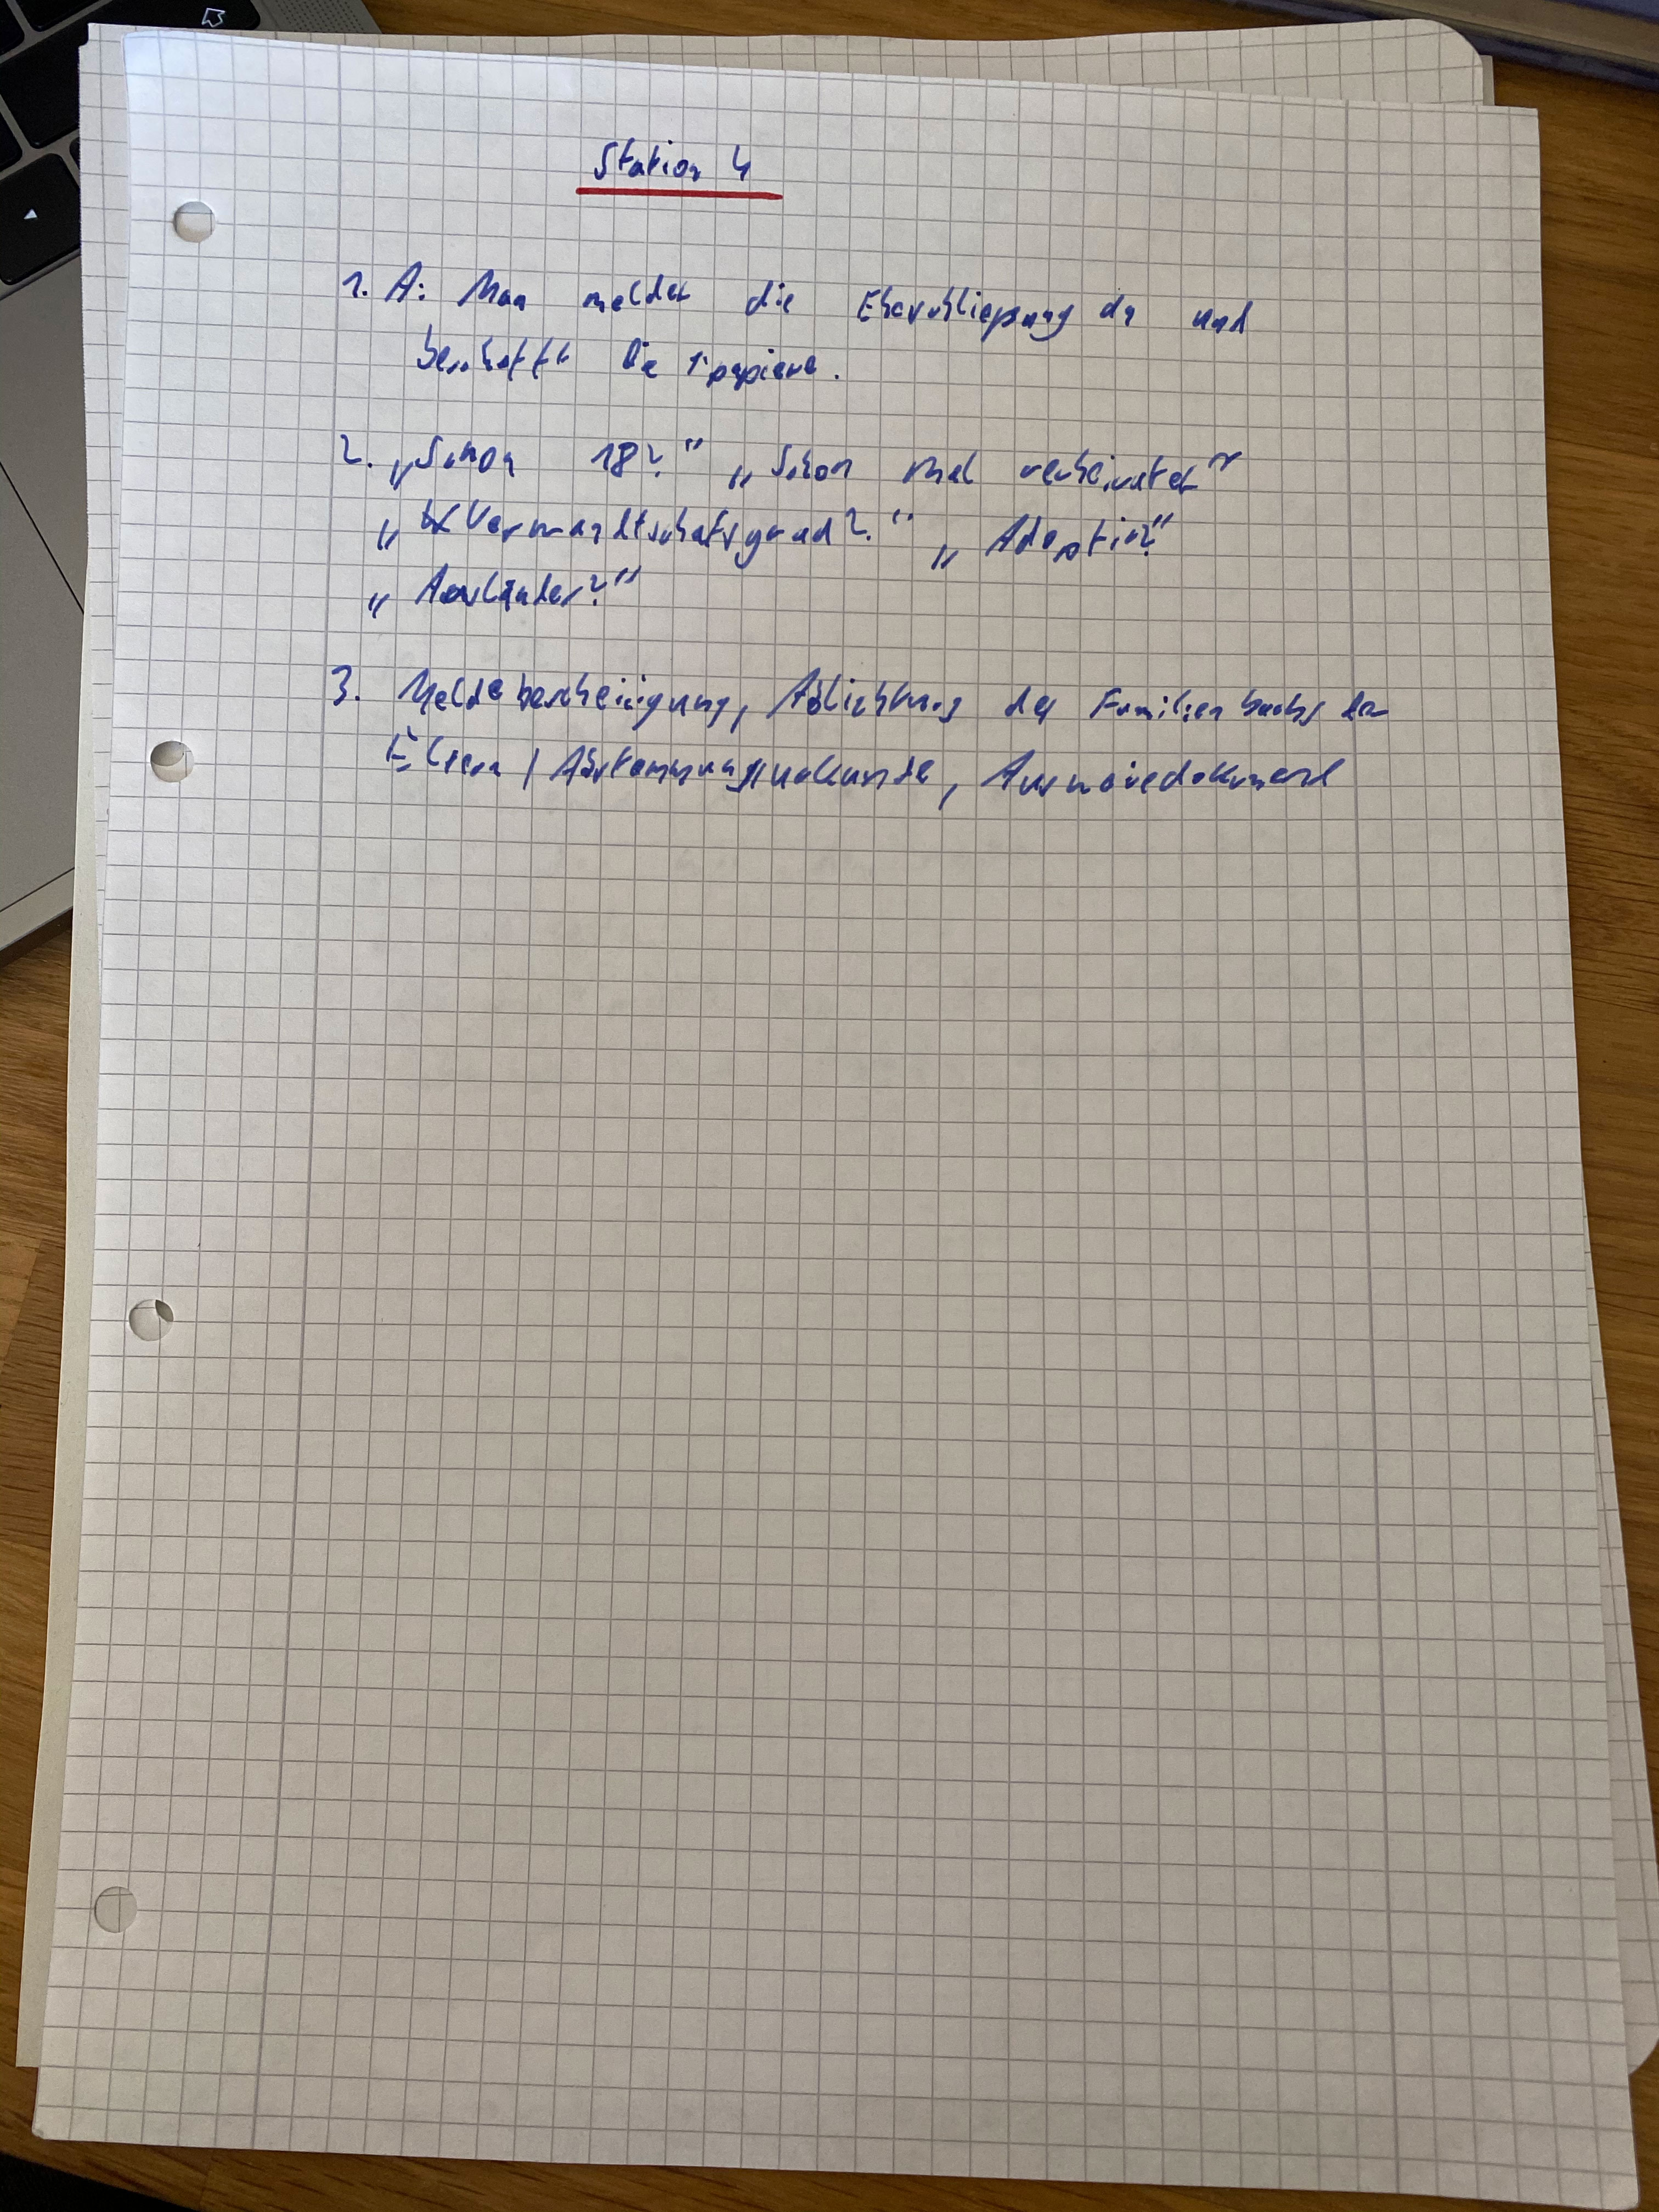 Station 4
1. A: Man meldet die Eheschließung an und
beschafft die papiere.
2. „Schon 18?" „Schon mal verheiratet"
„Verwandtschaftsgrad?" „Adoption?"
„Ausländer?"
3. Meldebescheinigung, Ablichtung des Familienbuchs der
Eltern / Abstammungsurkunde, Ausweisdokument